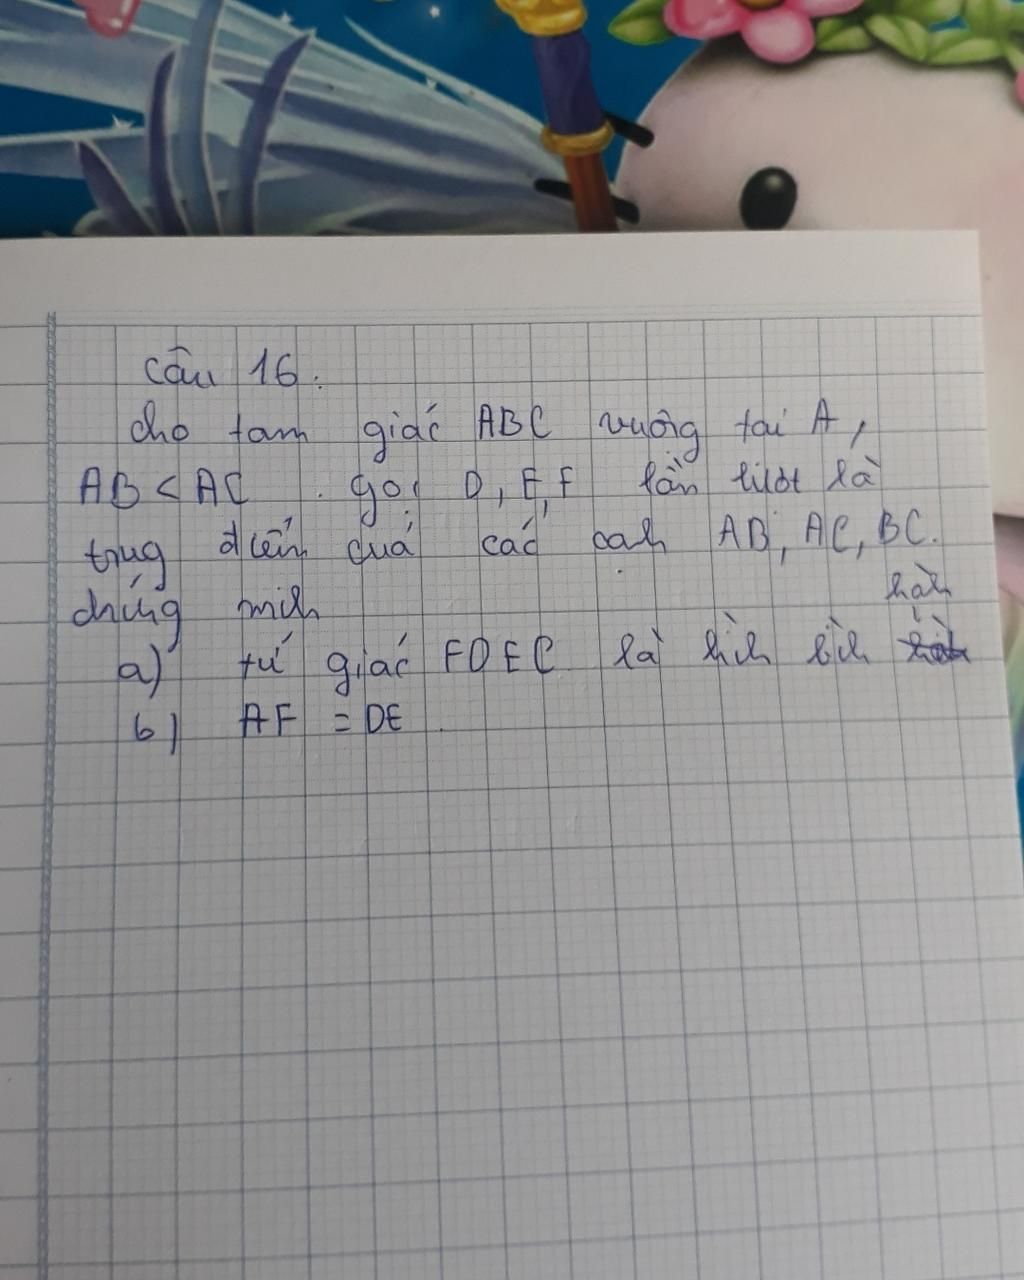 Câu 16.
Cho tam giác ABC vuông tại A,
AB < AC. gọi D, E, F lần lượt là
trung điểm của các cạnh AB, AC, BC.
chứng minh
a) tứ giác FDEC là hình bình hành
b) AF = DE.